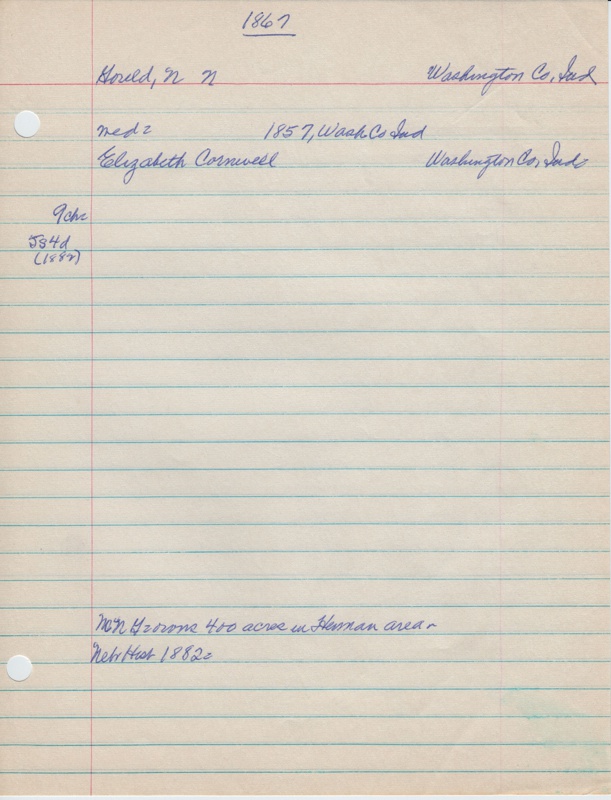 1867
Gould, N N Washington Co, Ind
med= 1857, Wash Co Ind
Elizabeth Cornwell Washington Co, Ind.
9ch=
5s4d
(1882)
N N G owns 400 acres in Herman area -
Nebr Hist 1882=